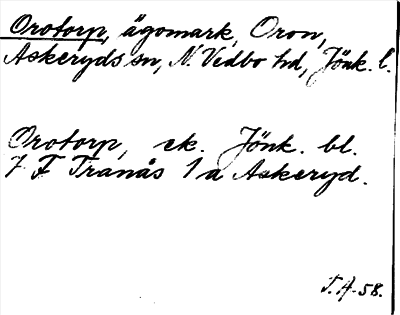 Orotorp, ägomark, Oron,
Askeryds sn, N. Vedbo hd, Jönk. l.
Orotorp, ek. Jönk. bl.
7 F Tranås 1 a Askeryd.
T.A. 58.